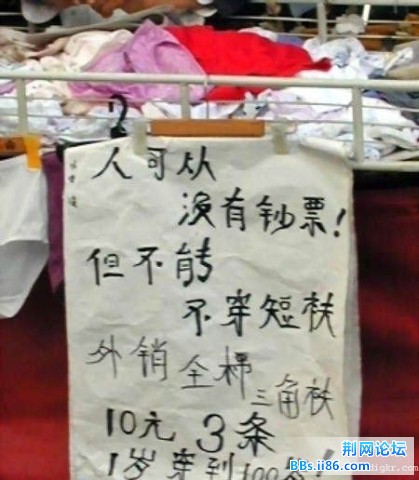 人可从
没有钞票!
但不能
不穿短衭
外销全棉三角衭
10元3条
1岁穿到100岁!
荆网论坛
BBs.ii86.com